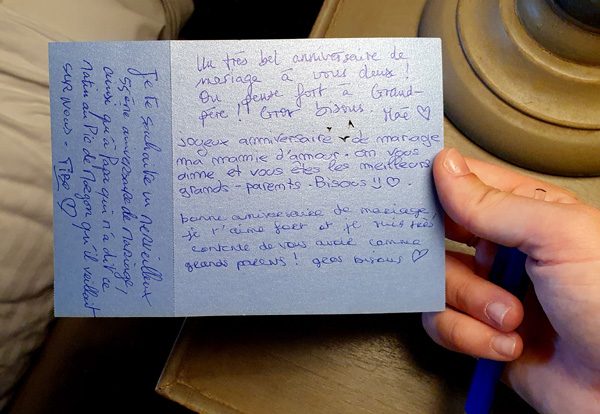 Un très bel anniversaire de
mariage à vous deux !
On pense fort à Grand-
père ! Gros bisous. Maé ♡
Joyeux anniversaire de mariage
ma mammie d'amour. on vous
aime et vous êtes les meilleurs
grands-parents. Bisous !! ♡
bonne anniversaire de mariage
je t'aime fort et je suis très
contente de vous avoir comme
grands parents ! gros bisous ♡
Je te souhaite un merveilleux
55ème anniversaire de mariage,
ainsi qu'à Papa qui m'a dit ce
matin au Pic de qu'il veillait
sur nous -